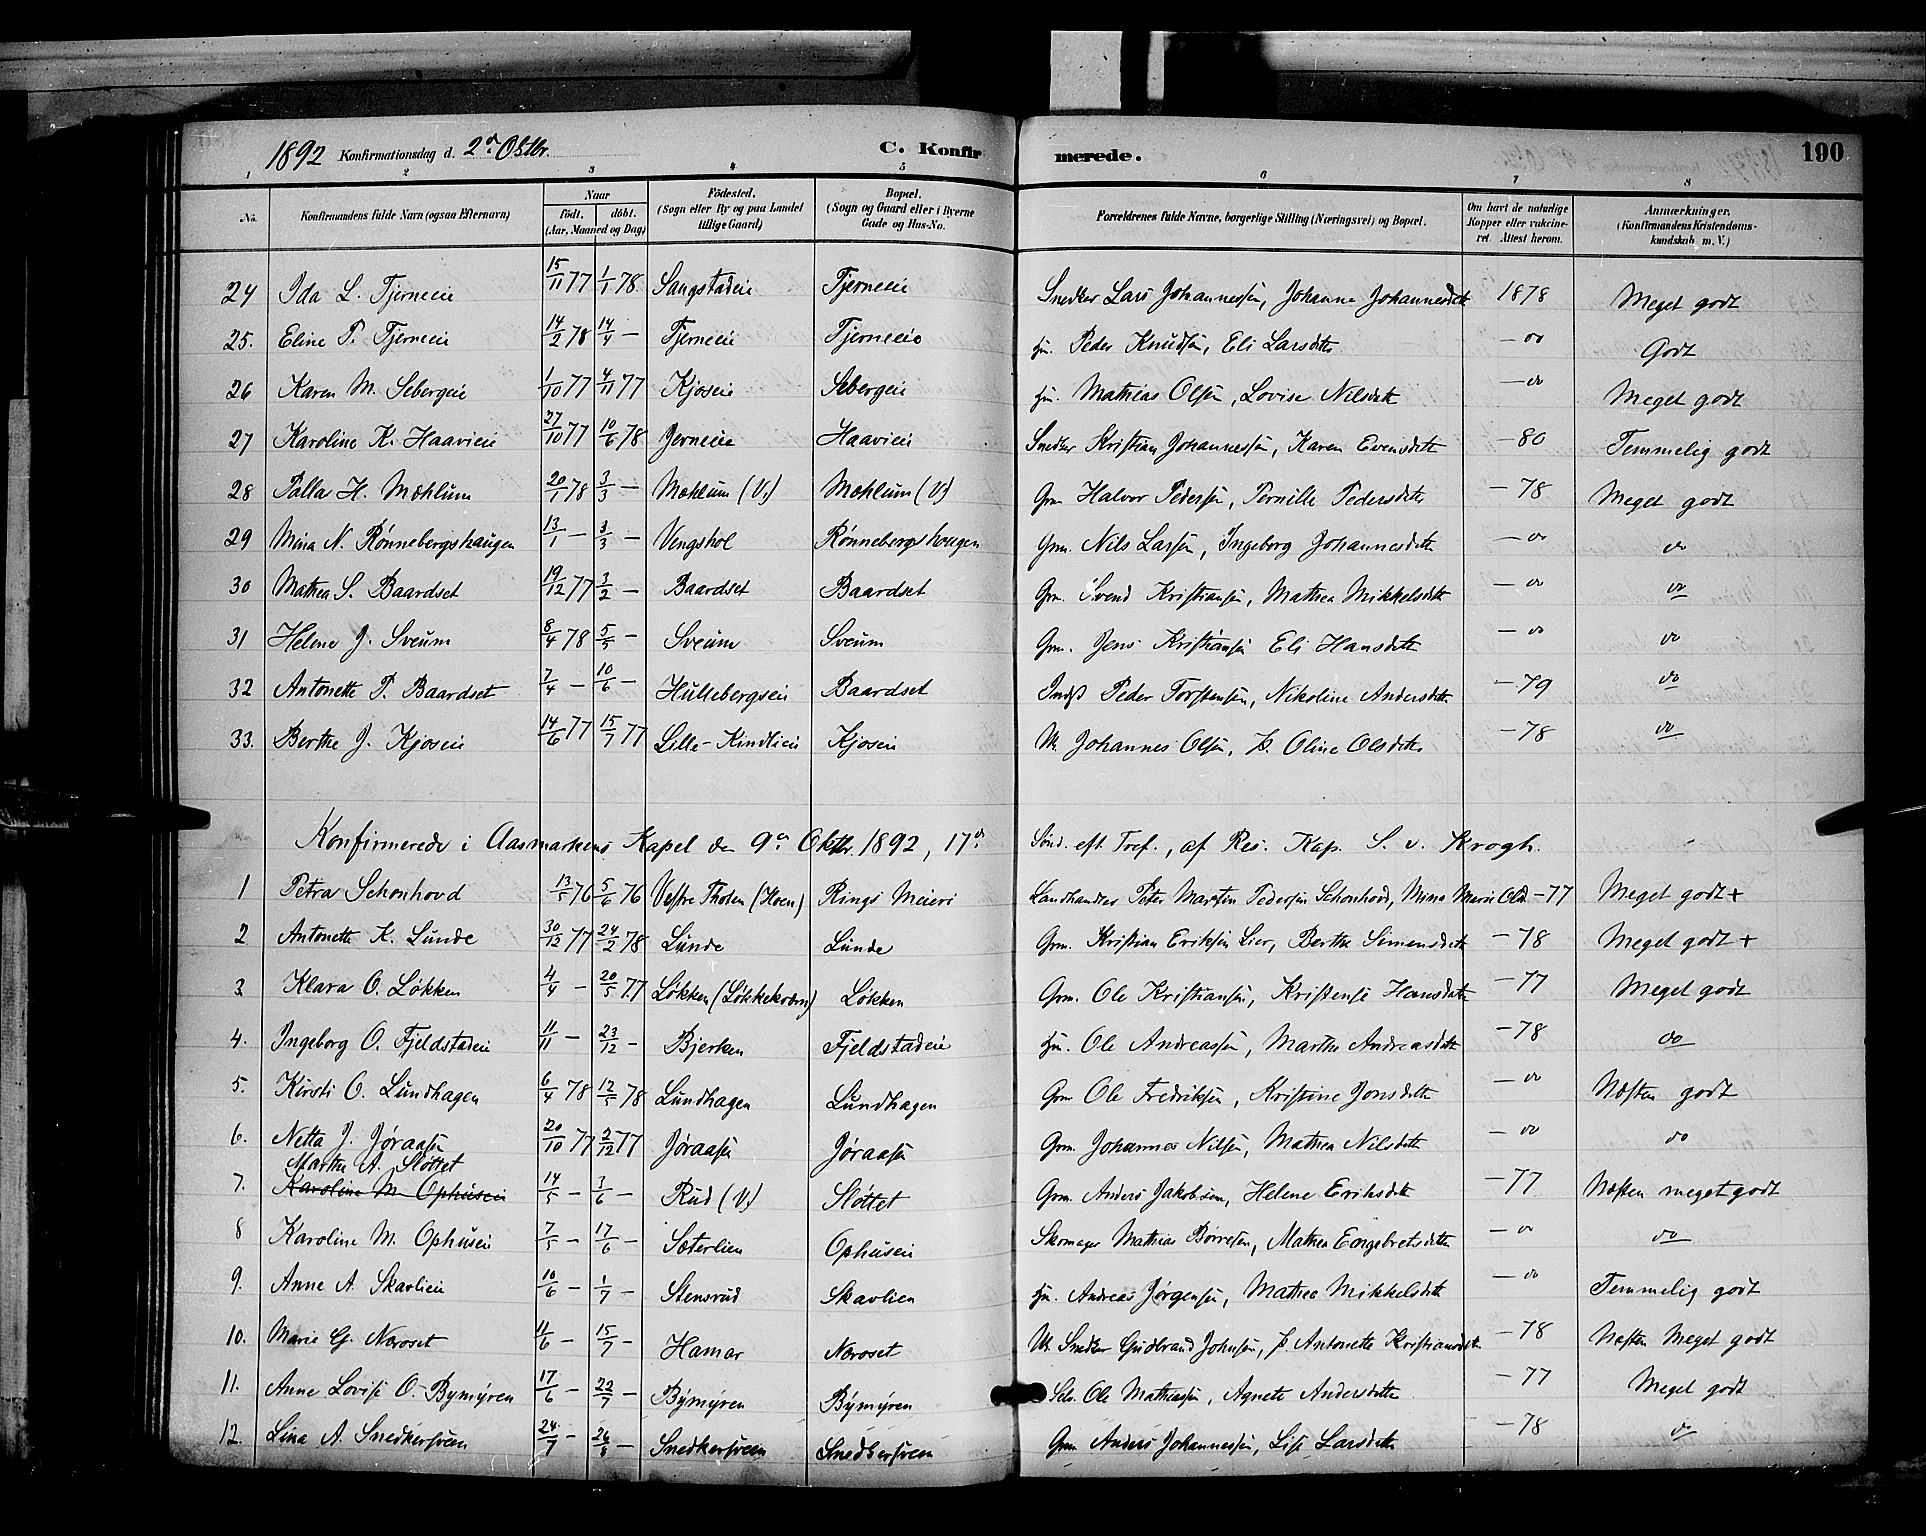 1892 Konfirmationsdag d. 2den Oktbr. C. Konfirmerede. 190
1 2 3 4 5 6 7 8
No. Konfirmandens fulde Navn (ogsaa Efternavn) Naar födt. döbt. (Aar, Maaned og Dag) Födested. (Sogn eller By og paa Landet tillige Gaard) Bopæl. (Sogn og Gaard eller i Byerne Gade og Hus-No. Forældrenes fulde Navne, borgerlige Stilling (Næringsvei) og Bopæl. Om havt de naturlige Kopper eller vakcineret. Attest herom. Anmærkninger. (Konfirmandens Kristendomskundskab m. V.)
24 Ida L. Tjerneeie 15/11 77 1/1 78 Saugstadeie Tjerneeie Snedker Lars Johannessen, Johanne Johannesdtr 1878 Meget godt
25. Eline P. Tjerneeie 14/2 78 14/4 — Tjerneeie Tjerneeie Hm. Peder Knudsen, Eli Larsdtr — do Godt
26 Karen M. Sebergeie 1/10 77 4/11 77 Kjoseie Sebergeie Hm. Mathias Olsen, Lovise Nilsdtr — do Meget godt
27 Karoline K. Haavieie 27/10 77 10/6 78 Jerneeie Haavieie Snedker Kristian Johannessen, Karen Evensdtr — 80 Temmelig godt
28 Palla H. Mæhlum 20/1 78 3/3 — Mæhlum (V.) Mæhlum (V.) Grm. Halvor Pedersen, Pernille Pedersdtr — 78 Meget godt
29 Mina N. Rønnebergshaugen 13/1 — 3/3 — Vengshol Rønnebergshaugen Grm. Nils Larsen, Ingeborg Johannesdtr — do do
30 Mathea S. Baardset 19/12 77 3/2 — Baardset Baardset Grm. Svend Kristiansen, Mathea Mikkelsdtr — do do
31 Helene J. Sveum 8/4 78 5/5 — Sveum Sveum Grm. Jens Kristiansen Eli Hansdtr — do do
32 Antonette P. Baardset 7/4 — 10/6 — Hullebergseie Baardset Indst Peder Torstensen, Nikoline Andersdtr — 79 do
33. Berthe J. Kjoseie 14/6 77 15/7 77 Lille-Kindlieie Kjoseie U. Johannes Olsen, P. Oline Olsdtr — 78 do
Konfirmerede i Aasmarkens Kapel den 9de Oktbr. 1892, 17de Sönd. eft. Tref., af Res. Kap. S. v. Krogh.
1 Petra Schonhovd 13/5 76 5/6 76 Vestre Tholen (Hoen) Rings Meieri Landhandler Peter Martin Pedersen Schonhovd, Mina Marie Olsd — 77 Meget godt +
2 Antonette K. Lunde 30/12 77 24/2 78 Lunde Lunde Grm. Kristian Eriksen Lier, Berthe Simensdtr — 78 Meget godt +
3 Klara O. Løkken 4/4 — 20/5 77 Løkken (Løkkekværn) Løkken Grm. Ole Kristiansen, Kristense Hansdtr — 77 Meget godt
4. Ingeborg O. Fjeldstadeie 11/11 — 23/12 — Bjerken Fjeldstadeie Hm. Ole Andreassen, Marthe Andreasdtr — 78 do
5. Kirsti O. Lundhagen 6/4 78 12/5 78 Lundhagen Lundhagen Grm Ole Fredriksen, Kristine Jonsdtr — do Næsten godt
6. Netta J. Jøraasen 20/10 77 2/12 77 Jøraasen Jøraasen Grm. Johannes Nilsen, Mathea Nilsdtr — do do
Marthe A. Sløttet
7. Karoline M. Ophuseie 14/5 — 3/6 — Rud (V.) Sløttet Grm. Anders Jakobsen, Helene Eriksdtr — 77 Næsten meget godt
8 Karoline M. Ophuseie 7/5 — 17/6 — Sæterlien Ophuseie Skomager Mathias Børresen, Mathea Engebretsdtr — do do
9. Anne A. Skavlien 10/6 — 1/7 — Stensrud Skavlien Hm. Andreas Jørgensen, Mathea Mikkelsdtr — do Temmelig godt
10. Marie G. Næroset 11/6 — 15/7 — Hamar Næroset U. Snedker Gudbrand Johnsen, P. Antonette Kristiansdtr — 78 Næsten Meget godt
11. Anne Lovise O. Bymyren 17/6 — 22/7 — Bymyren Bymyren Selv. Ole Mathiassen, Agnete Andersdtr — 77 Meget godt
12. Lina A. Snedkersveen 24/7 — 26/8 — Snedkersveen Snedkersveen Grm Anders Johannessen, Lise Larsdtr — 78 do